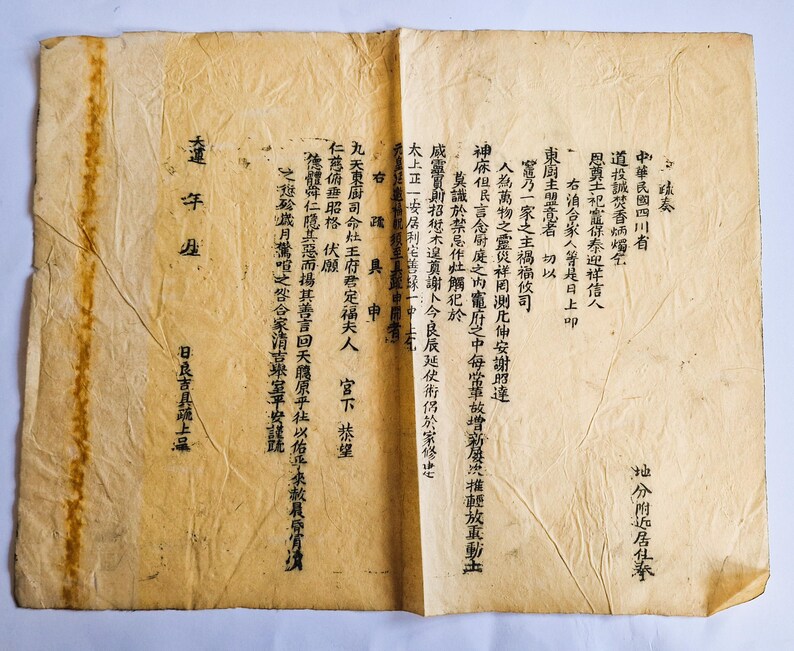 疏奏
中華民國四川省 地分附近居住奉
道投誠焚香炳燭仝
恩奠土祀竈保泰迎祥信人
右洎合家人等是日上叩
東厨主盟意者 切以
竈乃一家之主禍福攸司
人為萬物之靈災祥罔測凡伸安謝照達
神庥但民言念厨庭之內竈府之中每常革故增新屢次推輕放重動土
莫識於禁忌作灶觸犯於
威靈實則招愆不遑奠謝卜今良辰延使術侶於家修
太上正一安居利宅善緣一中上
至具疏申聞者
右疏具申
九天東厨司命灶王府君定福夫人 宮下 恭望
仁慈俯垂昭格 伏願
德體舜仁隱其惡而揚其善言回天聽原乎往以佑乎來赦晨昏
之愆殄歲月驚喧之咎合家清吉舉室平安謹疏
天運 年 月 日良吉具疏上呈